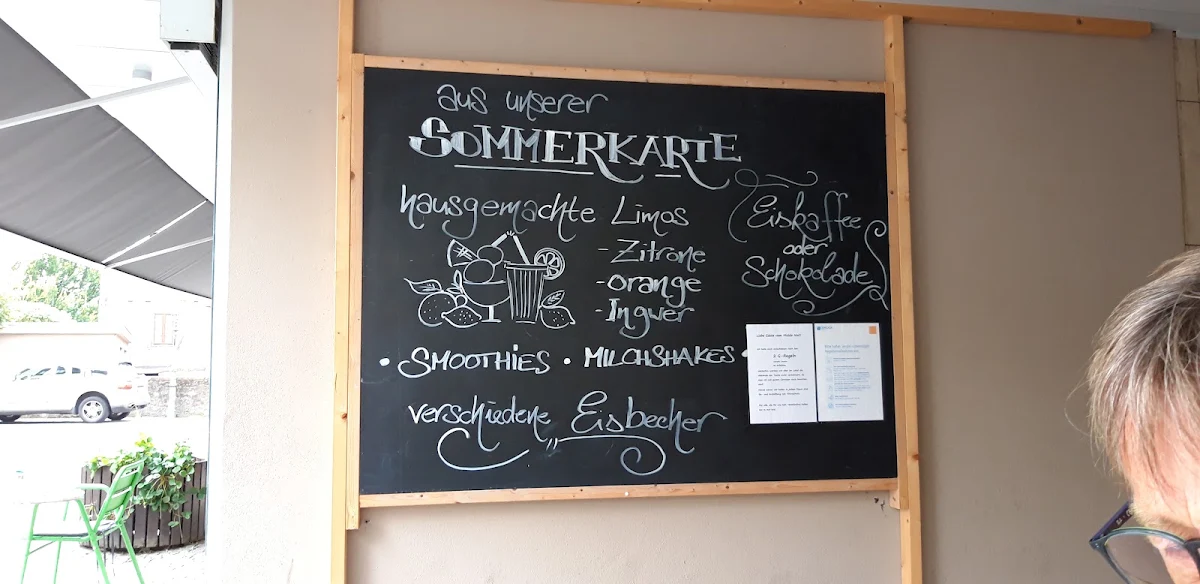 aus unserer
SOMMERKARTE
hausgemachte Limos
- Zitrone
- Orange
- Ingwer
Eiskaffee
oder
Schokolade
• SMOOTHIES • MILCHSHAKES •
verschiedene Eisbecher